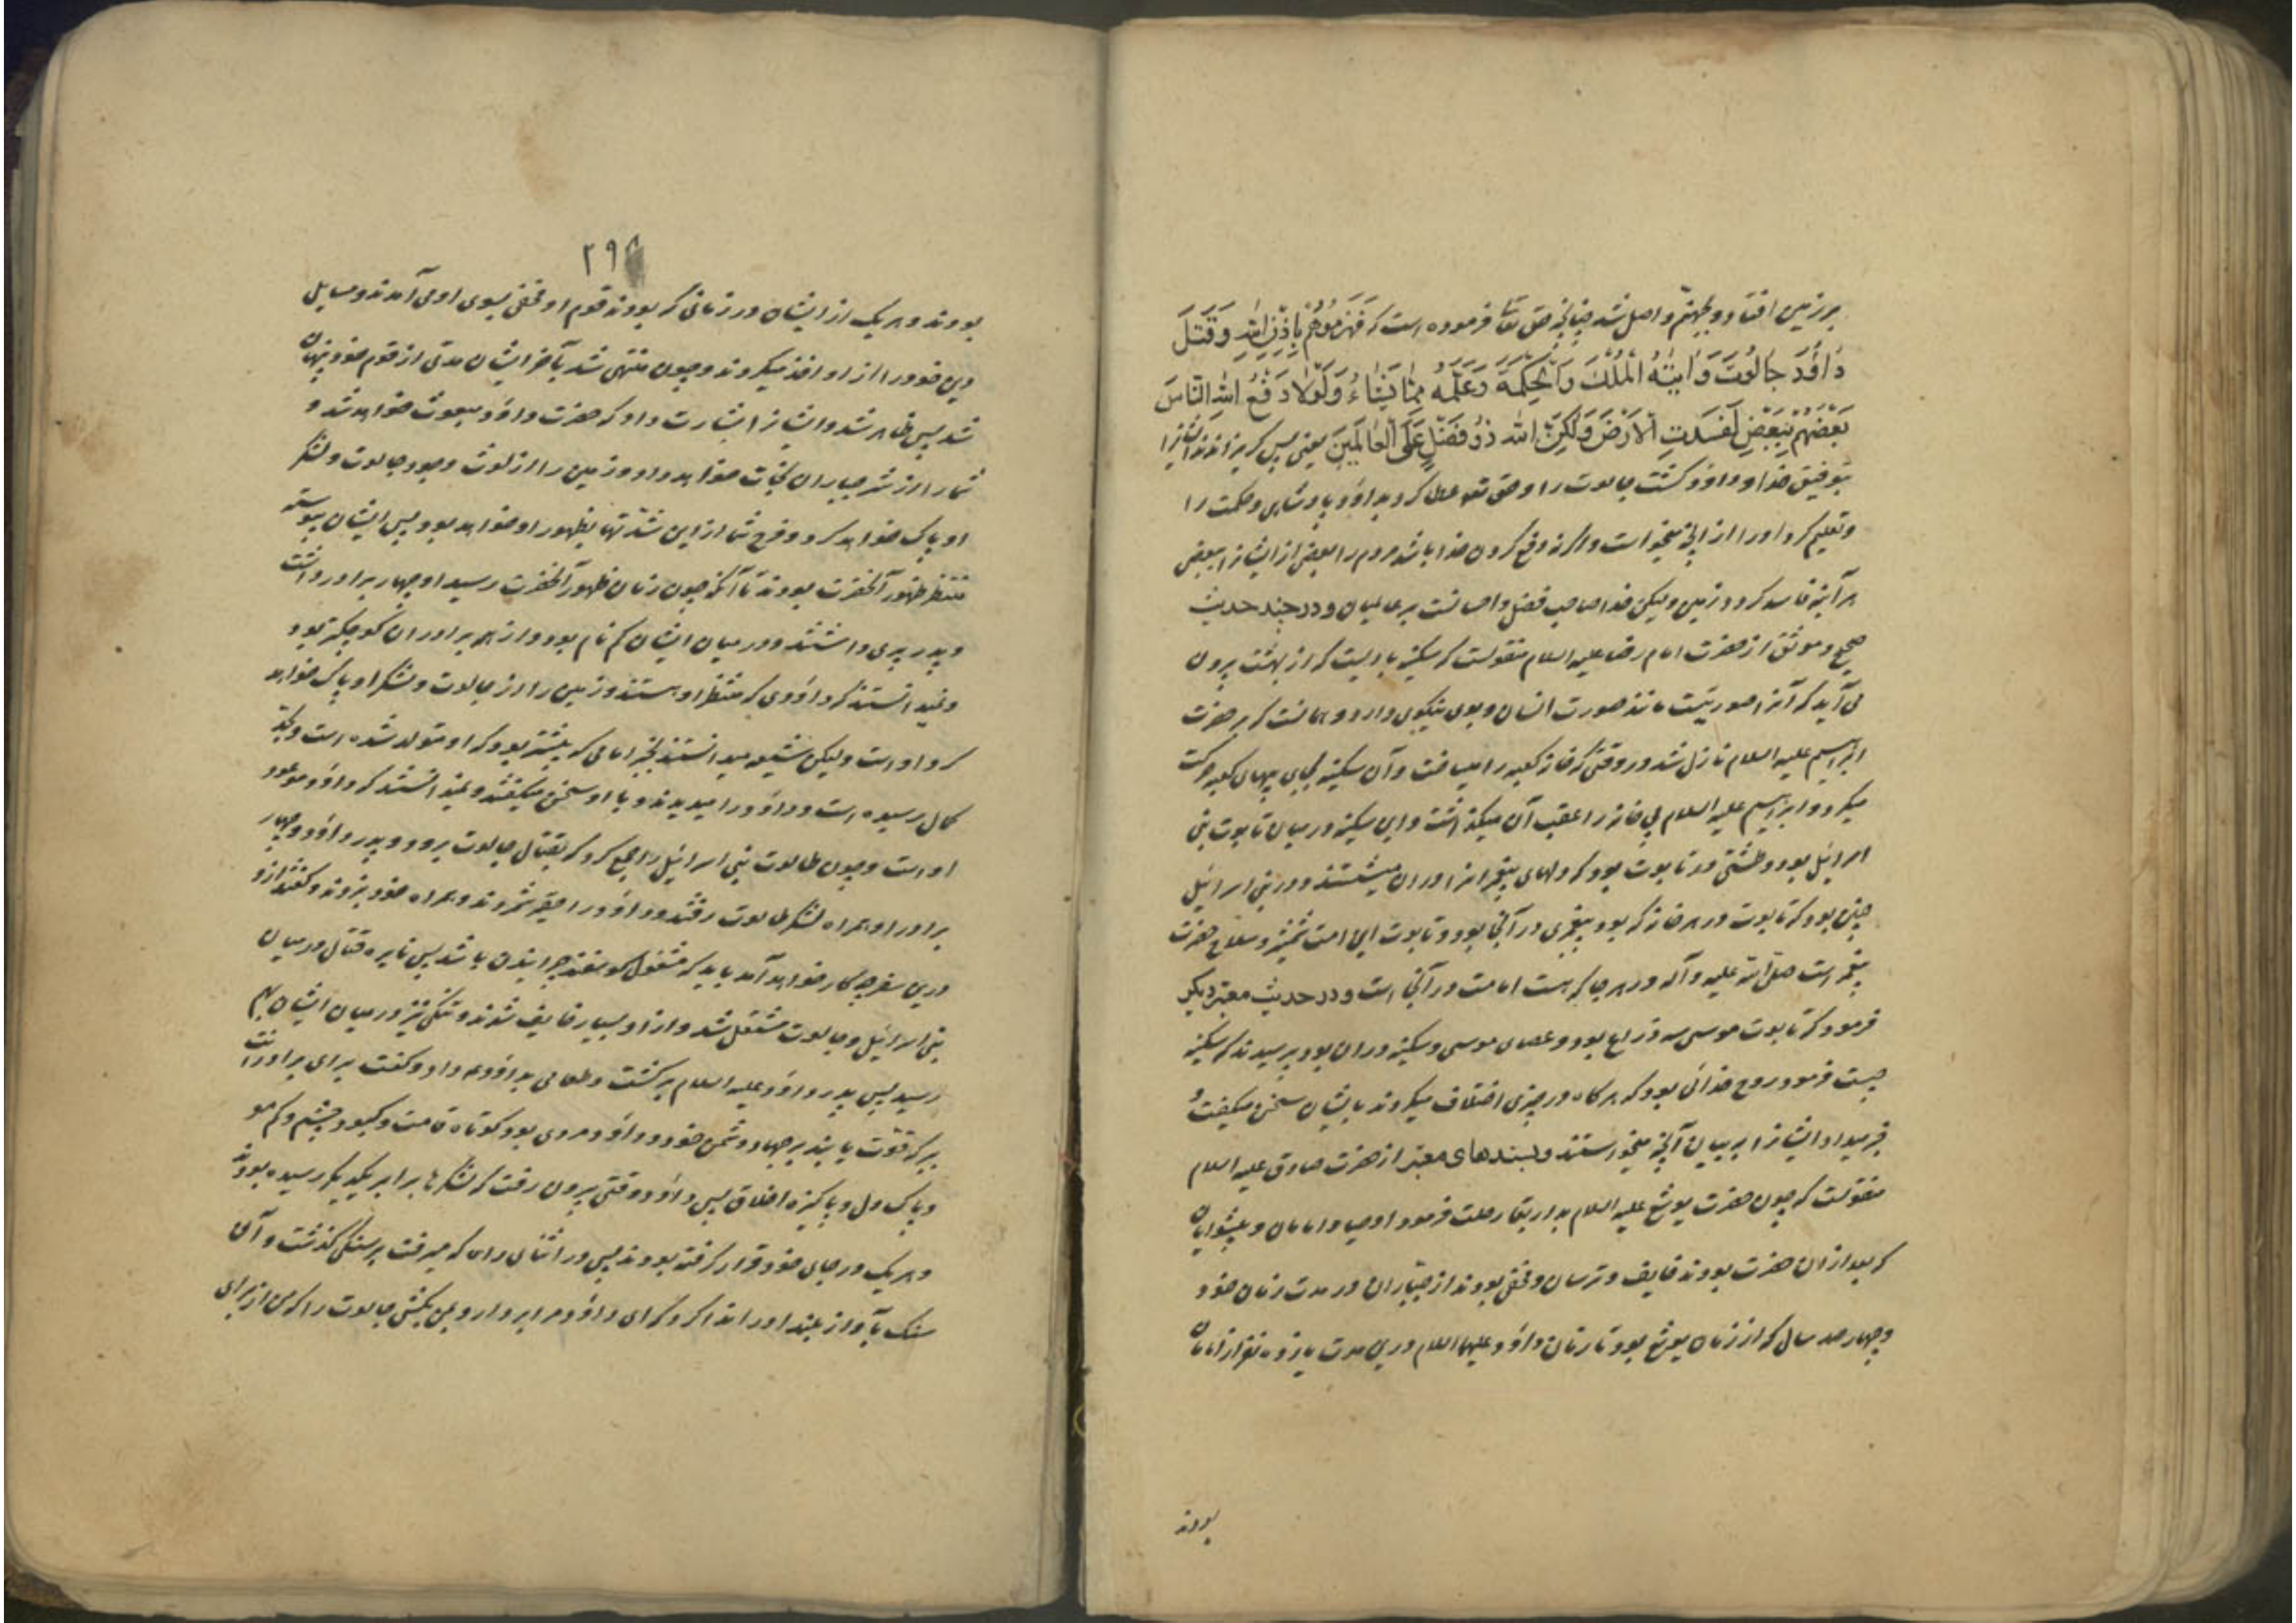 بر زمین افتاد و بجهنم واصل شد چنانچه حق تعا فرموده است که فَهَزَمُوهُمْ بِاِذْنِ اللهِ وَ قَتَلَ
دٰاوُدَ جٰالُوتَ وَ اٰتیٰهُ الْمُلْكَ وَ الْحِكْمَةَ وَ عَلَّمَهُ مِمّٰا یَشٰاءُ وَ لَوْلاٰ دَفْعُ اللهِ النّٰاسَ
بَعْضَهُمْ بِبَعْضٍ لَفَسَدَتِ الْاَرْضُ وَ لٰكِنَّ اللهَ ذُو فَضْلٍ عَلَی الْعٰالَمِینَ یعنی پس گریزاندند ایشانرا
بتوفیق خدا و داود کشت جالوت را و حق تعه عطا کرد بداود پادشاهی و حکمت را
و تعلیم کرد او را از آنچه میخواست و اگر نه دفع کردن خدا باشد مردم را بعضی از ایشانرا ببعضی
هر آینه فاسد گردد زمین و لیکن خدا صاحب فضل و احسانست بر عالمیان و در چند حدیث
صحیح و موثق از حضرت امام رضا علیه السلام منقولست که سکینه بادیست که از بهشت بیرون
می آید که آنرا صورتیست مانند صورت انسان و بوی نیکوی دارد و همانست که بر حضرت
ابراهیم علیه السلام نازل شد در وقتی که خانه کعبه را میساخت و آن سکینه بجای پیهای کعبه حرکت
میکرد و ابراهیم علیه السلام پی خانه را عقب آن میگذاشت و این سکینه در میان تابوت بنی
اسرائیل بود و طشتی در تابوت بود که دلهای پیغمبرانرا در آن میشستند و در بنی اسرائیل
چنین بود که تابوت در هر خانه که بود پیغمبری در آنجا بود و تابوت این امت شمشیر و سلاح حضرت
پیغمبر است صلی الله علیه و آله در هر جا که هست امامت در آنجا است و در حدیث معتبر دیگر
فرمود که تابوت موسی سه ذراع بود و عصای موسی و سکینه در آن بود پرسیدند که سکینه
چیست فرمود روح خدائی بود که هر گاه در چیزی اختلاف میکردند بایشان سخن میگفت و
خبر میداد ایشانرا به بیان آنچه میخواستند و بسندهای معتبر از حضرت صادق علیه السلام
منقولست که چون حضرت یوشع علیه السلام بدار بقا رحلت فرمود اوصیا و امامان و پیشوایان
که بعد از آن حضرت بودند خایف و ترسان و مخفی بودند از جباران در مدت زمان خود
و چهار صد سال که از زمان یوشع بود تا زمان داود علیهما السلام درین مدت یازده نفر از امامان
بودند
۲۹
بودند و هر یک از ایشان در زمانی که بودند قوم او مخفی بسوی او می آمدند و مسایل
دین خود را از او اخذ میکردند و چون منتهی شد بآخر ایشان مدتی از قوم خود پنهان
شد پس ظاهر شد و ایشانرا بشارت داد که حضرت داود مبعوث خواهد شد و
شما را از شر جباران نجات خواهد داد و زمین را از لوث وجود جالوت و لشکر
او پاک خواهد کرد و فرج شما از این شدتها بظهور او خواهد بود پس ایشان پیوسته
منتظر ظهور آنحضرت بودند تا آنکه چون زمان ظهور آنحضرت رسید او چهار برادر داشت
و پدر پیری داشتند و در میان ایشان گم نام بود و از همه برادران کوچکتر بود
و نمیدانستند که داودی که منتظر او هستند و زمین را از جالوت و لشکر او پاک خواهد
کرد او است و لیکن شیعه میدانستند بخبر امامی که پیشتر بود که او متولد شده است و بحد
کمال رسیده است و داود را میدیدند و با او سخن میگفتند و نمیدانستند که داود موعود
او است و چون طالوت بنی اسرائیل را جمع کرد که بقتال جالوت برود و پدر داود و چهار
برادر او همراه لشکر طالوت رفتند و داود را حقیر شمردند و همراه خود نبردند و گفتند از او
درین سفر چه کار خواهد آمد باید که مشغول گوسفند چرانیدن باشد پس نایره قتال در میان
بنی اسرائیل و جالوت مشتعل شد و از او بسیار خایف شدند و تنگی نیز در میان ایشان بهم
رسید پس پدر داود علیه السلام برگشت و طعامی بداود ع داد و گفت برای برادرانت
ببر که قوت یابند بر جهاد دشمن خود و داود مردی بود کوتاه قامت و کبود چشم و کم مو
و پاک دل و پاکیزه اخلاق پس داود وقتی بیرون رفت که لشکرها برابر یکدیگر رسیده بودند
و هر یک در جای خود قرار گرفته بودند پس در اثنای راه که میرفت بر سنگی گذشت و آن
سنگ بآواز بلند او را ندا کرد که ای داود مرا بردار و بمن بکش جالوت را که من از برای